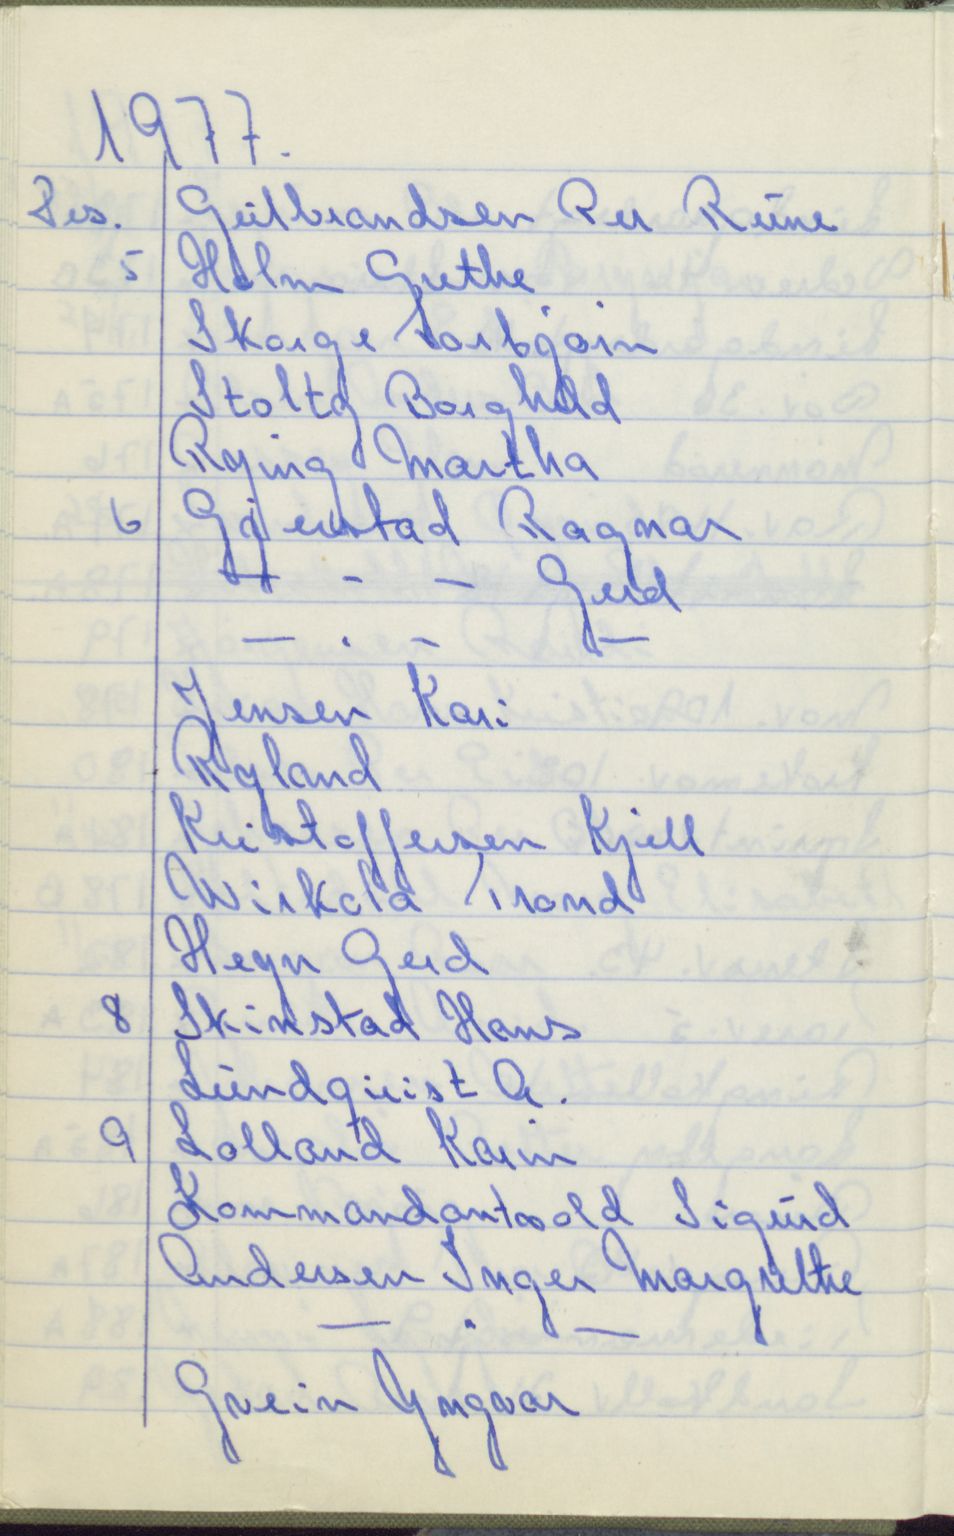 1977.
Des. Gulbrandsen Per Rune
5 Holm Grethe
Skorge Torbjörn
Stoltz Borghild
Rying Martha
6 Gjerstad Ragnar
— " - — Gerd
— . - —
Jensen Kari
Ryland
Kristoffersen Kjell
Wirkola Trond
Heyn Gerd
8 Skinstad Hans
Lundquist A.
9 Lolland Karin
Kommandantvold Sigurd
Andersen Inger Margrethe
— . —
Gvein Yngvar